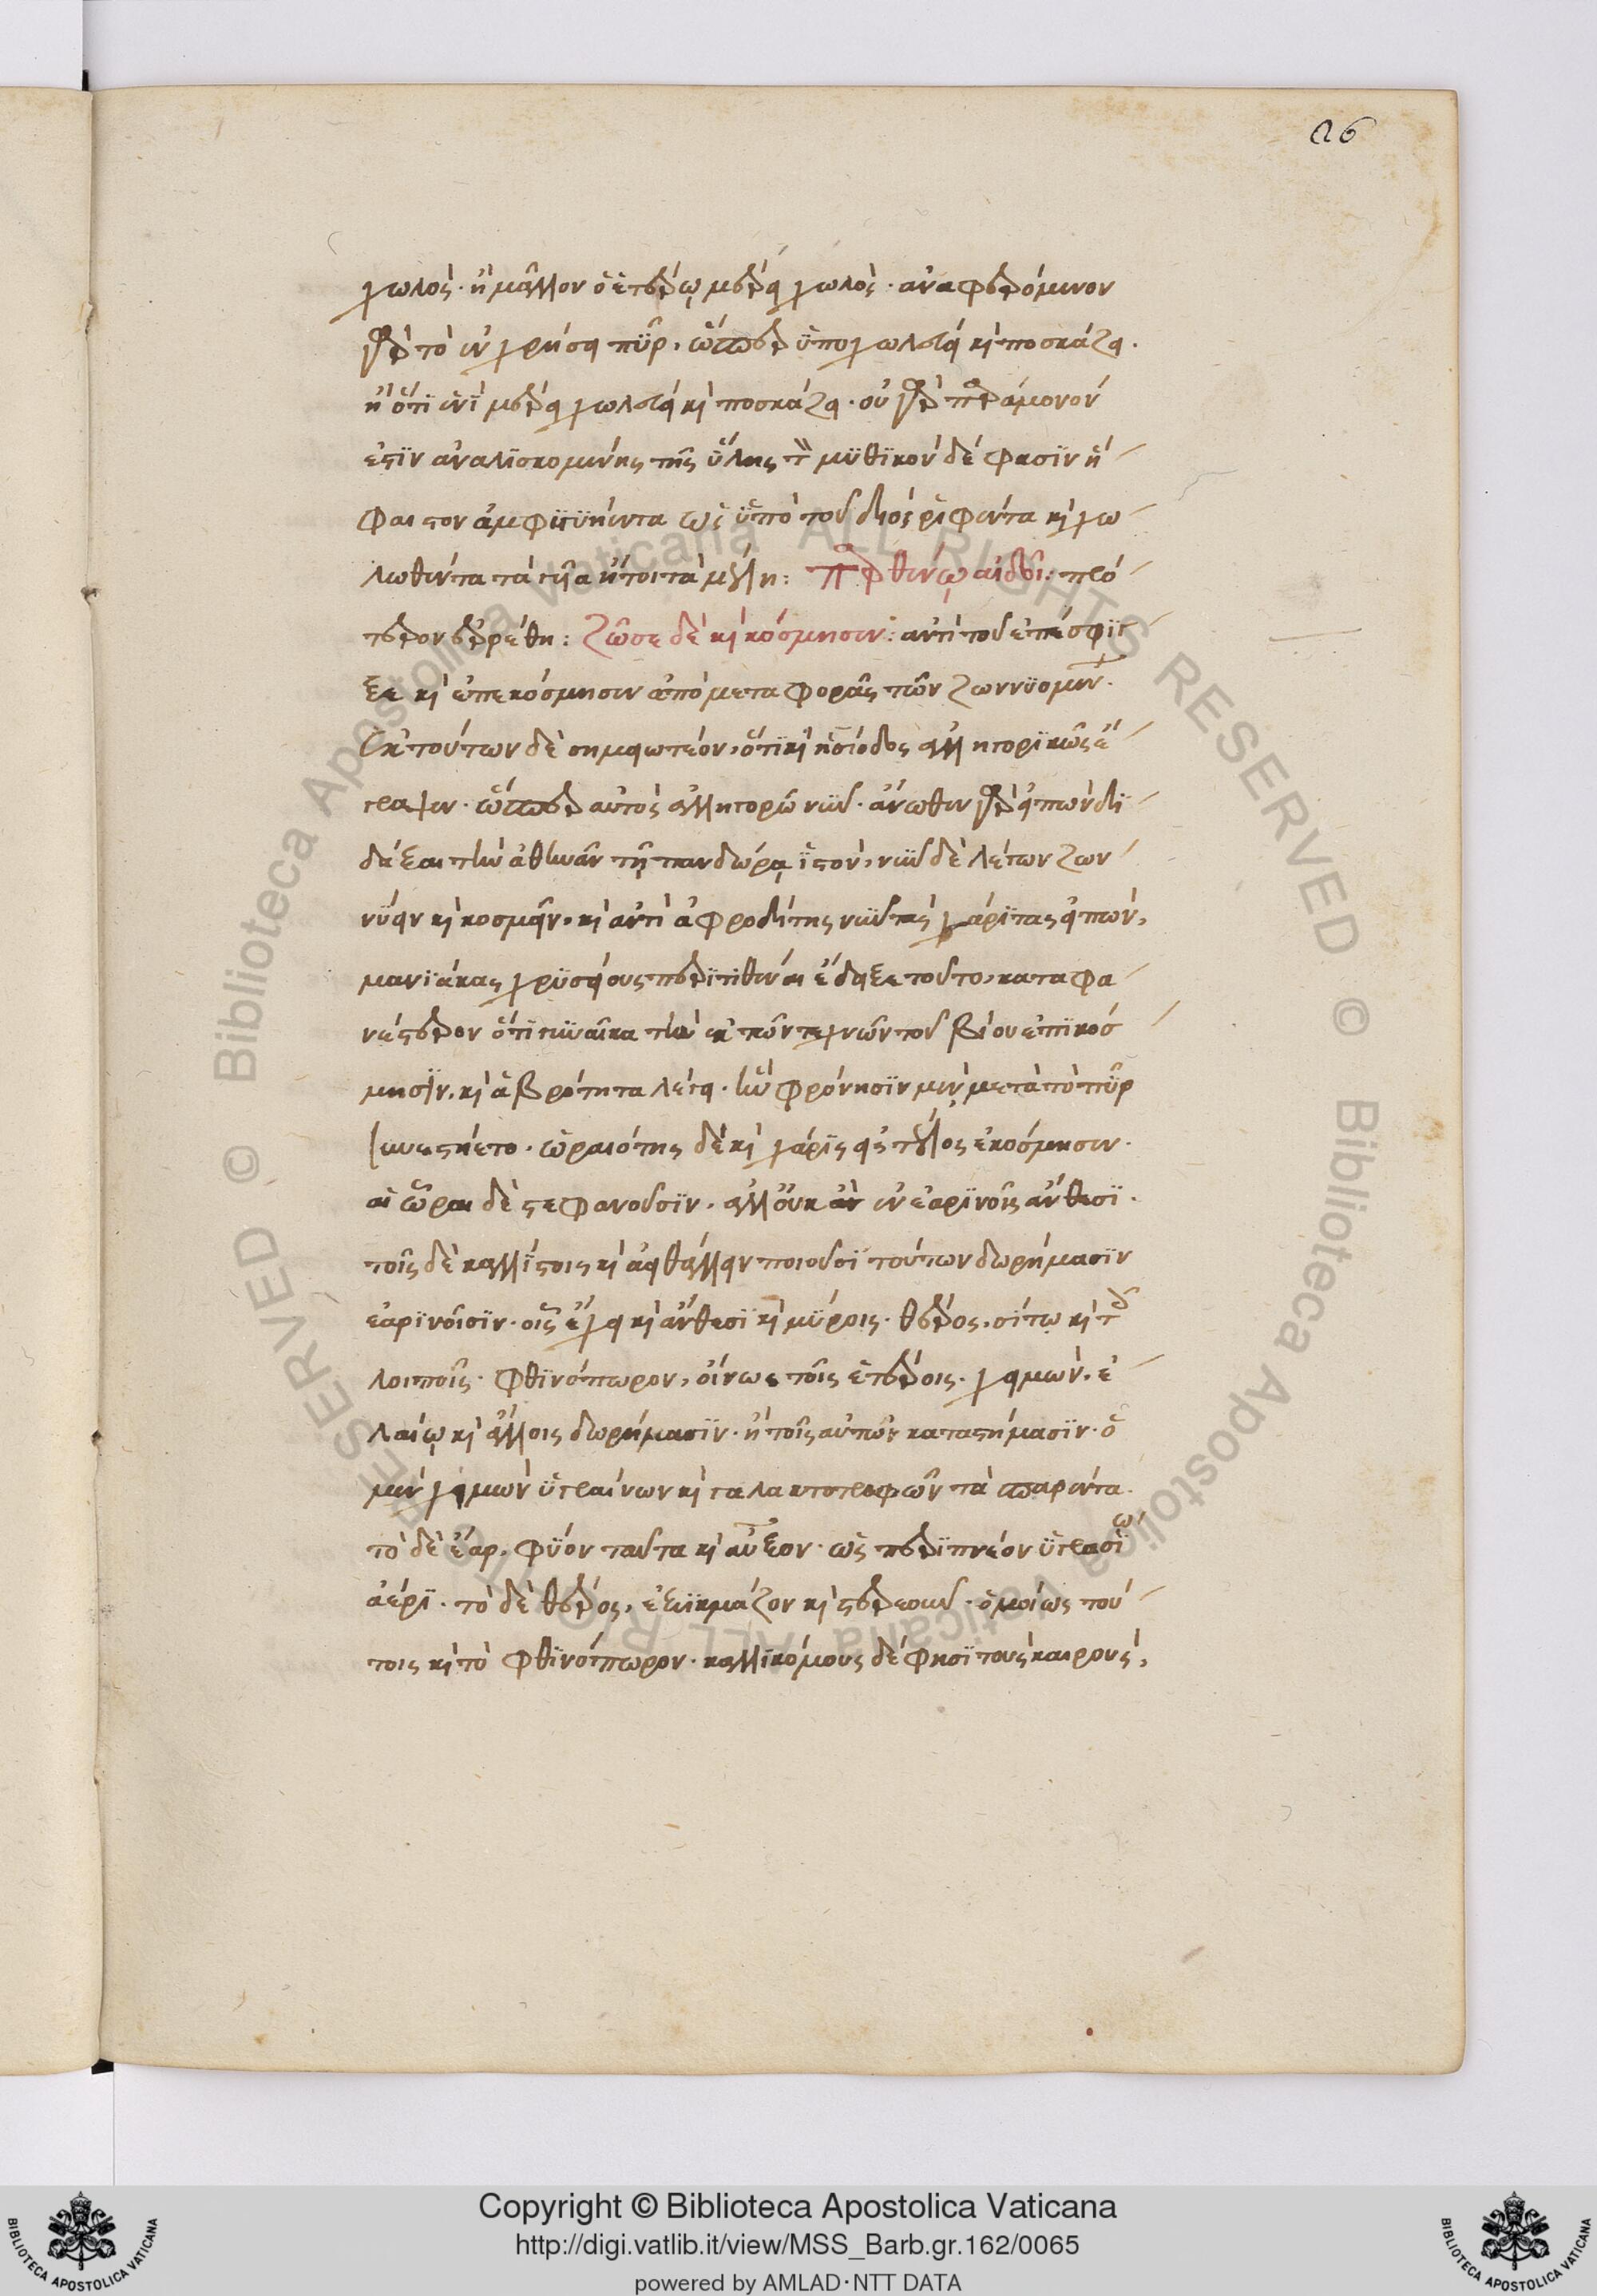 26
χωλὸς. ἢ μᾶλλον ὁ ἑτέρω μέρει χωλὸς. ἀναφερόμενον
γὰρ τὸ ἐν χρήσει πῦρ, ὥσπερ ὑποχωλεύει καὶ ποσκάζει.
ἢ ὅτι ἑνὶ μέρει χωλεύει καὶ ποσκάζει. οὐ γὰρ παράμονόν
ἐστιν ἀναλισκομένης τῆς ὕλης μυθικὸν δέ φασιν ἥ
φαιστον ἀμφιγυήεντα ὡς ὑπὸ τοῦ διὸς ῥιφέντα καὶ χω
λωθέντα τὰ γυῖα ἤτοι τὰ μέλη: παρθένω αἰδοῖ: πρό
τερον ἐρρέθη: ζῶσε δὲ καὶ κόσμησεν: ἀντὶ τοῦ ἐπέσφιγ
ξε καὶ ἐπεκόσμησεν ἀπὸ μεταφορᾶς τῶν ζωννυομένων.
Ἐκ τούτων δὲ σημειωτέον, ὅτι καὶ ἡσίοδος ἀλληγορικῶς ἔ
γραψεν. ὥσπερ αὐτὸς ἀλληγορῶ νῦν. ἄνωθεν γὰρ εἰπὼν δι
δάξαι τὴν ἀθηνᾶν τῇ πανδώρᾳ ἱστὸν, νῦν δὲ λέγων ζων
νύειν καὶ κοσμεῖν, καὶ ἀντὶ ἀφροδίτης νῦν τὰς χάριτας εἰπὼν,
μανιάκας χρυσείους περιτιθέναι ἔδειξε τοῦτο, καταφα
νέστερον ὅτι γυναῖκα τὴν ἐκ τῶν τεχνῶν τοῦ βίου ἐπικόσ
μησιν, καὶ ἁβρότητα λέγει. ἣν φρόνησιν μὲν μετὰ τὸ πῦρ
συνεστήσατο. ὡραιότης δὲ καὶ χάρις εἰς τέλος ἐκόσμησεν.
αἱ ὧραι δὲ στεφανοῦσιν, ἀλλ' οὐκ ἂν ἐν ἐαρινοῖς ἄνθεσι.
τοῖς δὲ καλλίστοις καὶ ἀειθάλλειν ποιοῦσι τούτων δωρήμασιν
ἐαρινοῖσιν. οἷς ἔχει καὶ ἄνθεσι καὶ μύροις. θέρος, σίτω καὶ τοῖς
λοιποῖς. φθινόπωρον, οἴνω τοῖς ἑτέροις. χειμὼν, ἐ
λαίω καὶ ἄλλοις δωρήμασιν. ἢ τοῖς αὐτῶν καταστήμασιν. ὁ
μὲν χειμὼν ὑγραίνων καὶ γαλακτοτροφῶν τὰ σπαρέντα.
τὸ δὲ ἔαρ, φύον ταῦτα καὶ αὖξον. ὡς περιπνέον ὑγρασίω
ἀέρι. τὸ δὲ θέρος, ἐξικμάζον καὶ στερεοῦν. ὁμοίως τού
τοις καὶ τὸ φθινόπωρον. καλλικόμους δέ φησι τοὺς καιροὺς,
Copyright © Biblioteca Apostolica Vaticana
http://digi.vatlib.it/view/MSS_Barb.gr.162/0065
powered by AMLAD·NTT DATA